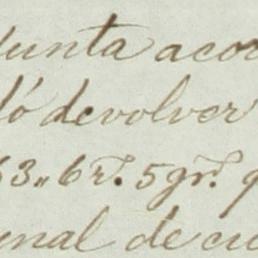 Junta acor
dó devolver
63,, 6 r.s 5 gr.s q
unal de cu